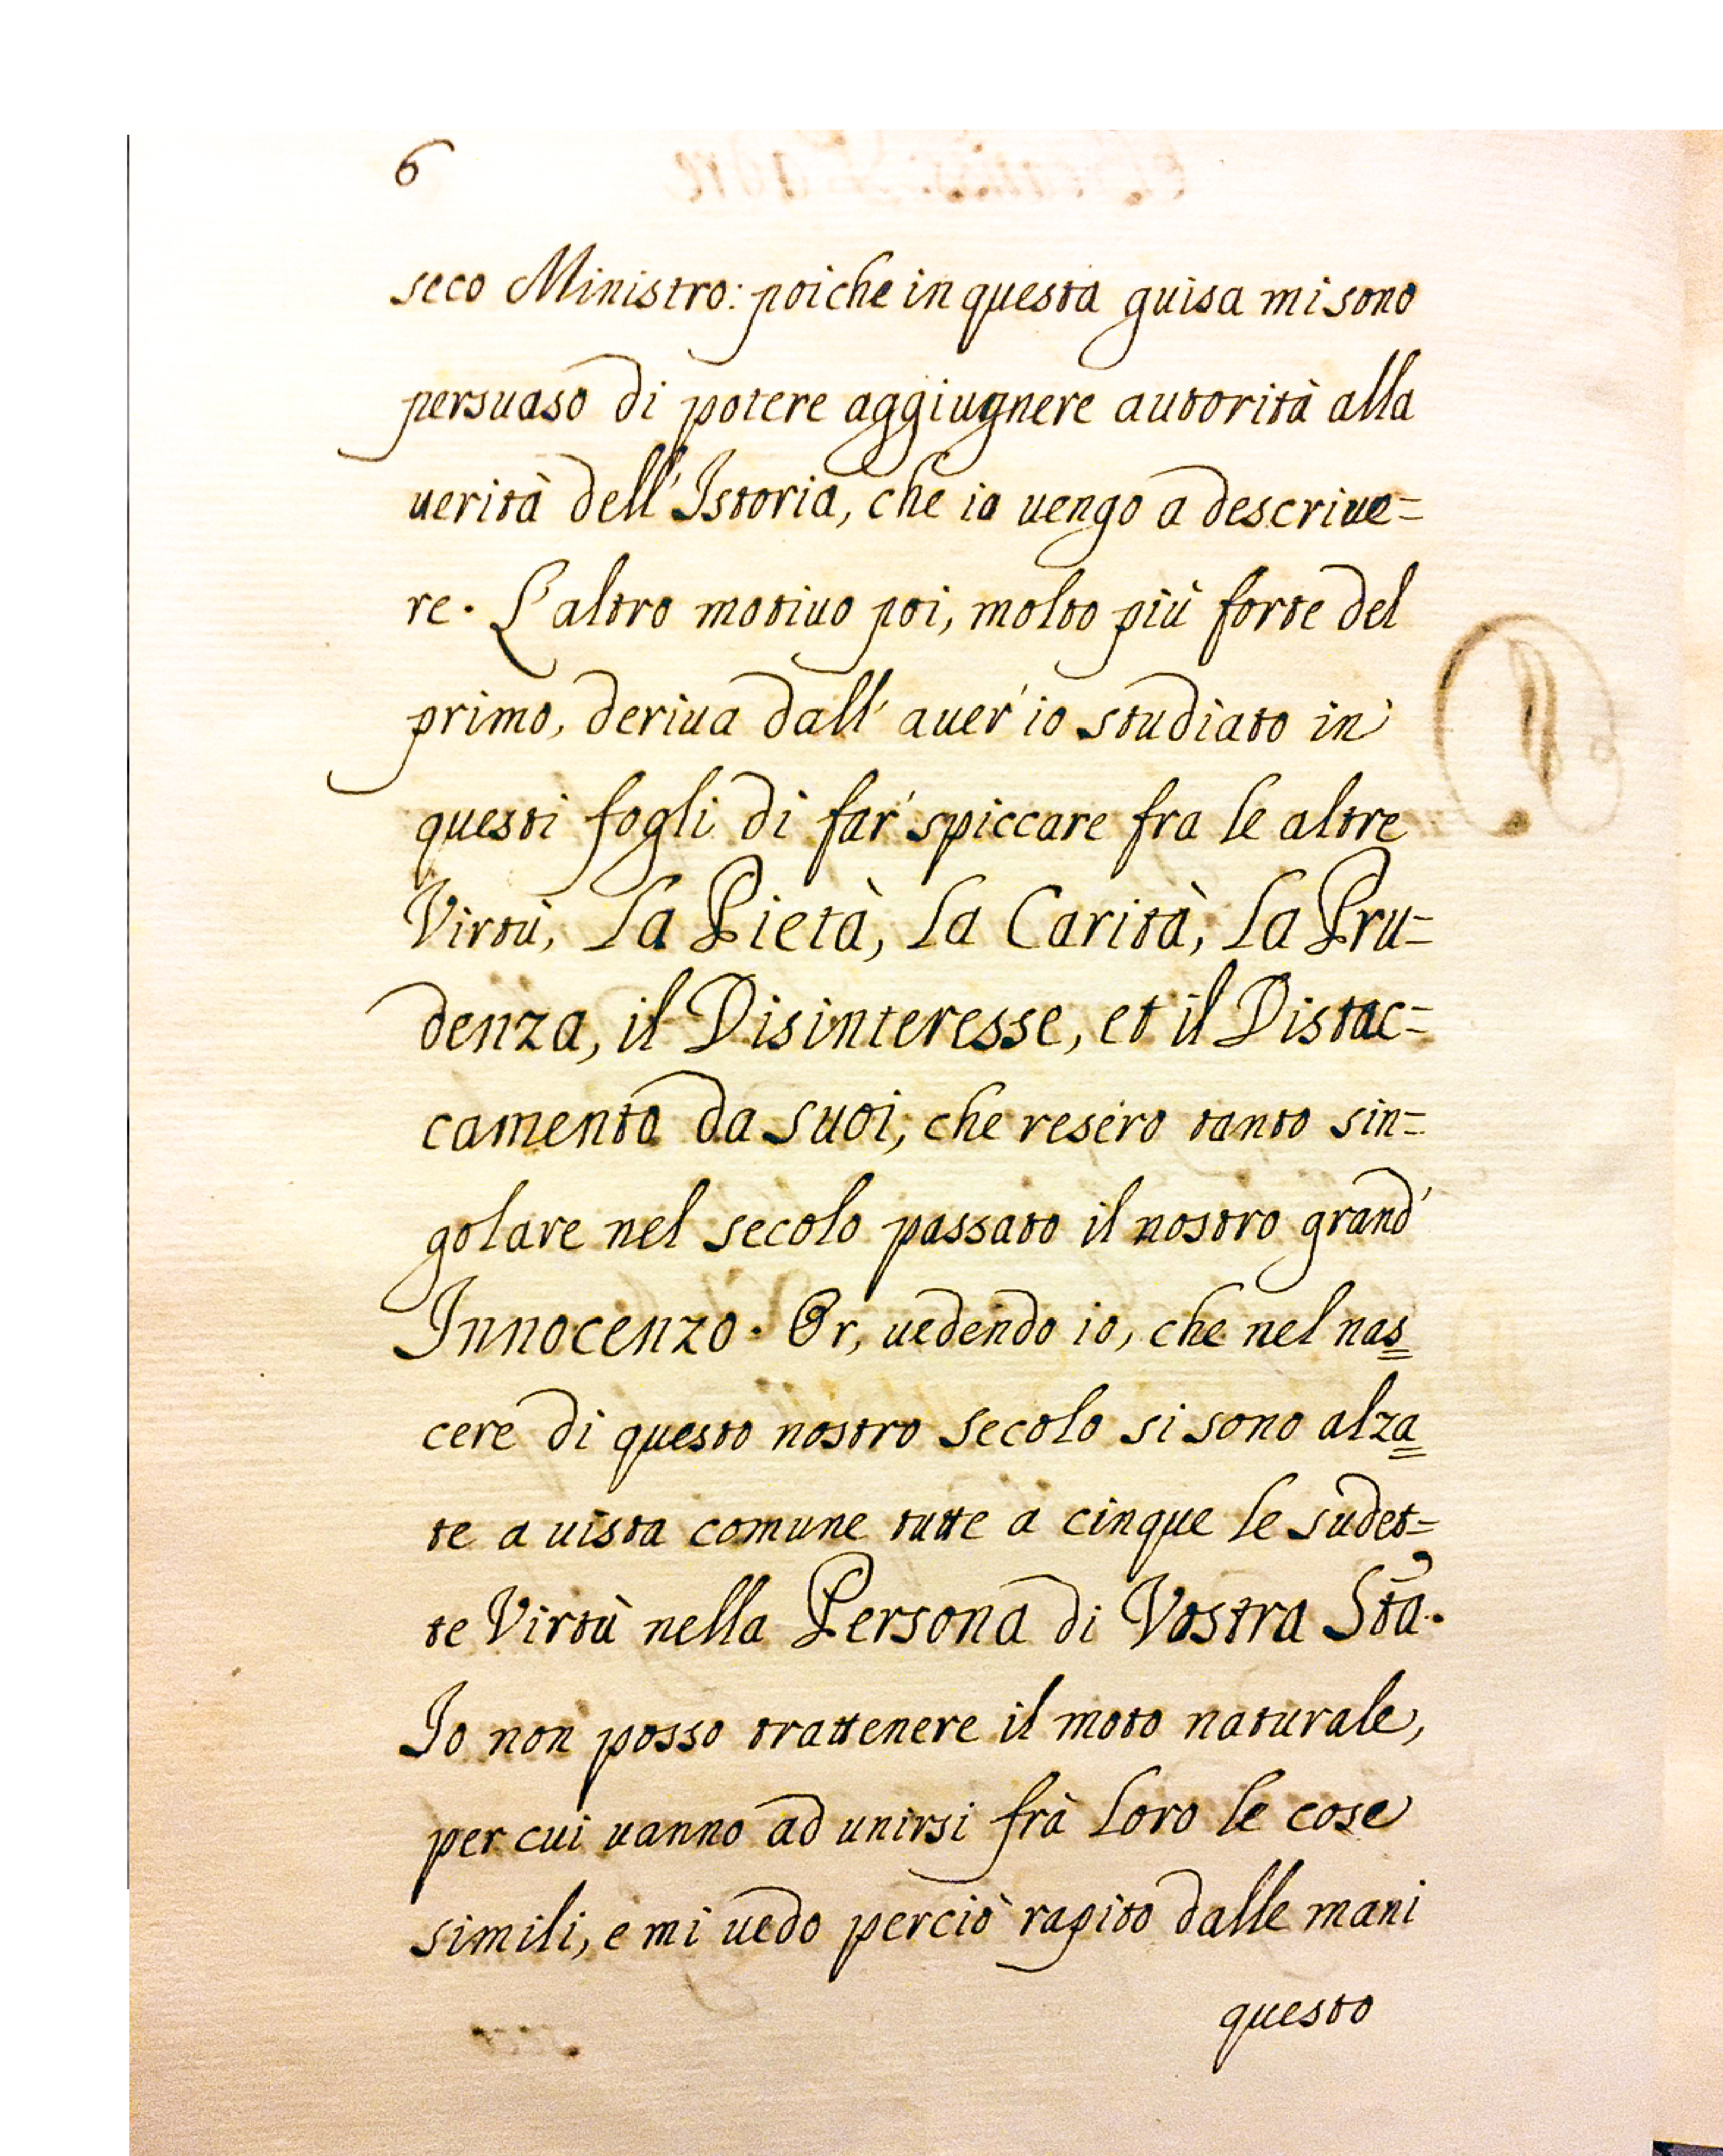 6
seco Ministro: poiche in questa guisa mi sono
persuaso di potere aggiugnere autorità alla
uerità dell'Istoria, che io uengo a descriue=
re. L'altro motiuo poi, molto più forte del
primo, deriua dall' auer' io studiato in
questi fogli di far' spiccare fra le altre
Virtù, la Pietà, la Carità, la Pru=
denza, il Disinteresse, et il Distac=
camento da suoi, che resero tanto sin=
golare nel secolo passato il nostro grand'
Innocenzo. Or, uedendo io, che nel nas=
cere di questo nostro secolo si sono alza=
te a uista comune tutte a cinque le sudet=
te Virtù nella Persona di Vostra Stà.
Io non posso trattenere il moto naturale,
per cui uanno ad unirsi frà loro le cose
simili, e mi uedo perciò rapito dalle mani
questo